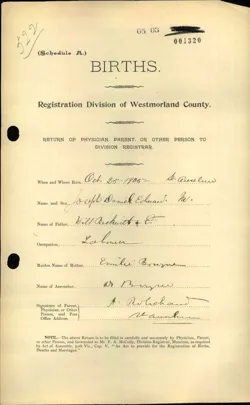 05 05
001320
522
(Schedule A.)
BIRTHS.
Registration Division of Westmorland County.
RETURN OF PHYSICIAN PARENT, OR OTHER PERSON TO
DIVISION REGISTRAR.
When and Where Born, Oct 25 1905
Name and Sex, Joseph Daniel Edward M.
Name of Father,
Occupation, Laborer
Maiden Name of Mother, Emilie
Name of Accoucheur, Dr
Signature of Parent, A.
Physician, or Other
Person, and Post
Office Address
NOTE.— The above Return is to be filled in carefully and accurately by Physician, Parent,
or other Person, and forwarded to Mr. F. A. McCully, Division Registrar, Moncton, as required
by Act of Assembly, 50th Vic., Cap. V. "An Act to provide for the Registration of Births,
Deaths and Marriages."